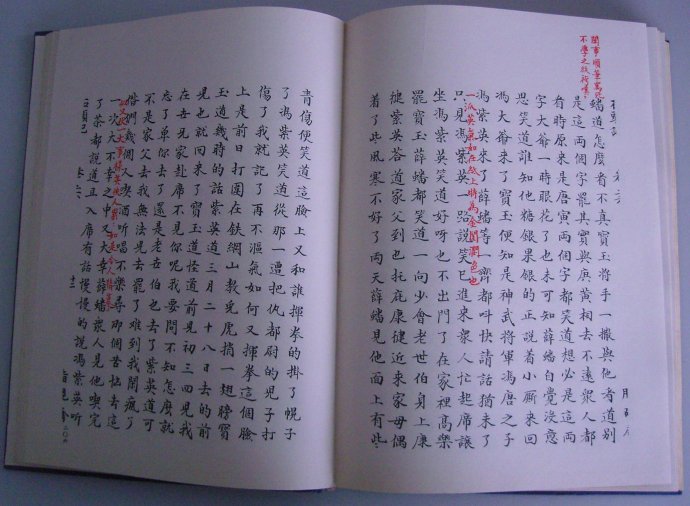 閒事順筆罵死
不學之紈袴嘆
蟠道怎麼看不真寶玉將手一撒與他看道別
是這兩個字罷其實與庚黃相去不遠眾人都
看時原來是唐寅兩個字都笑道想必是這兩
字大爺一時眼花了也未可知薛蟠自覺沒意
思笑道誰知他糖銀果銀的正說着小厮來回
馮大爺來了寶玉便知是神武將軍馮唐之子
馮紫英來了薛蟠等一齊都叫快請話猶未了
只見馮紫英一路說笑已進來眾人忙起席讓
一派英氣如在紙上特為金閨潤色也
坐馮紫英笑道好呀也不出門了在家裡高樂
罷寶玉薛蟠都笑道一向少會老世伯身上康
健紫英荅道家父到也托庇康健近來家母偶
着了些風寒不好了兩天薛蟠見他面上有些
青傷便笑道這臉上又和誰揮拳的掛了幌子
了馮紫英笑道從那一遭把仇都尉的兒子打
傷了我就記了再不漚氣如何又揮拳這個臉
上是前日打圍在鉄網山教兔虎捎一翅膀寶
玉道幾時的話紫英道三月二十八日去的前
兒也就回來了寶玉道怪道前兒初三四兒我
在世兄家赴席不見你呢我要問不知怎麼就
忘了单你去了還是老世伯也去了紫英道可
不是家父去我無法兒去罷了難到我閒瘋了
偺們幾個人吃酒聽唱不樂尋那個苦惱去這
一次大不幸之中又大幸薛蟠眾人見他吃完
了茶都說道且入席有話慢慢的說馮紫英聽